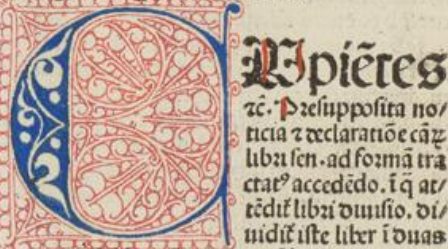 C Upiētes
ꝛc̄. Presupposita no
ticia ⁊ declaratiōe cāꝝ
libri sen. ad formā tra
ctatꝰ accedēdo. ī q̄ at/
tēdit̄ libri diuisio. di/
uidit̄ iste liber ī duas